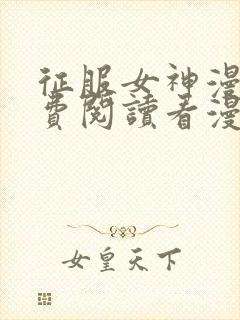 征服女神漫
費閱讀看漫
女皇天下